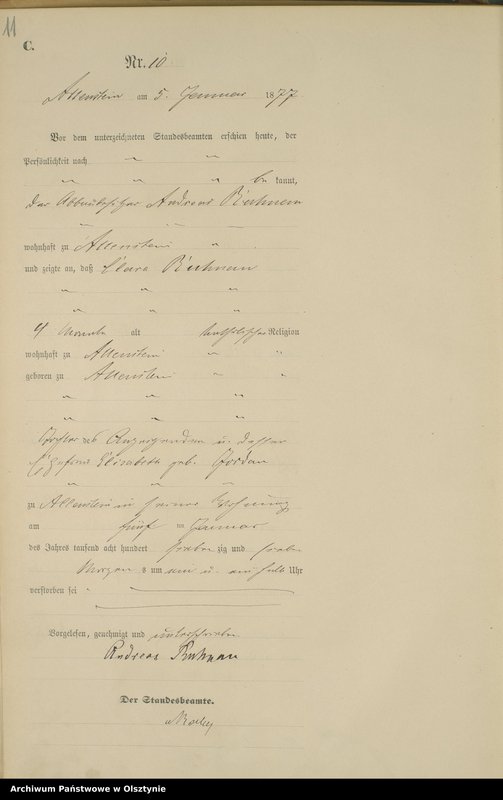 11
C.
Nr. 10
Allenstein am 5. Januar 1877.
Vor dem unterzeichneten Standesbeamten erschien heute, der
Persönlichkeit nach
be kannt,
der Abbaubesitzer Andreas
wohnhaft zu Allenstein
und zeigte an, daß Clara
4 Monate alt katholischer Religion
wohnhaft zu Allenstein
geboren zu Allenstein
Tochter des Anzeigenden u. dessen
Ehefrau Elisabeth geb. Jordan
zu Allenstein in seiner Wohnung
am fünf ten Januar
des Jahres tausend acht hundert sieben zig und sieben
Morgen s um Uhr
verstorben sei
Vorgelesen, genehmigt und unterschrieben
Andreas
Der Standesbeamte.
Archiwum Państwowe w Olsztynie